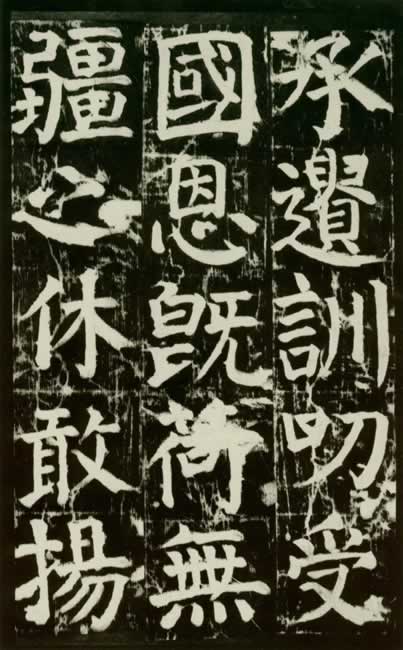 承遺訓叨受
國恩旣荷無
疆之休敢揚